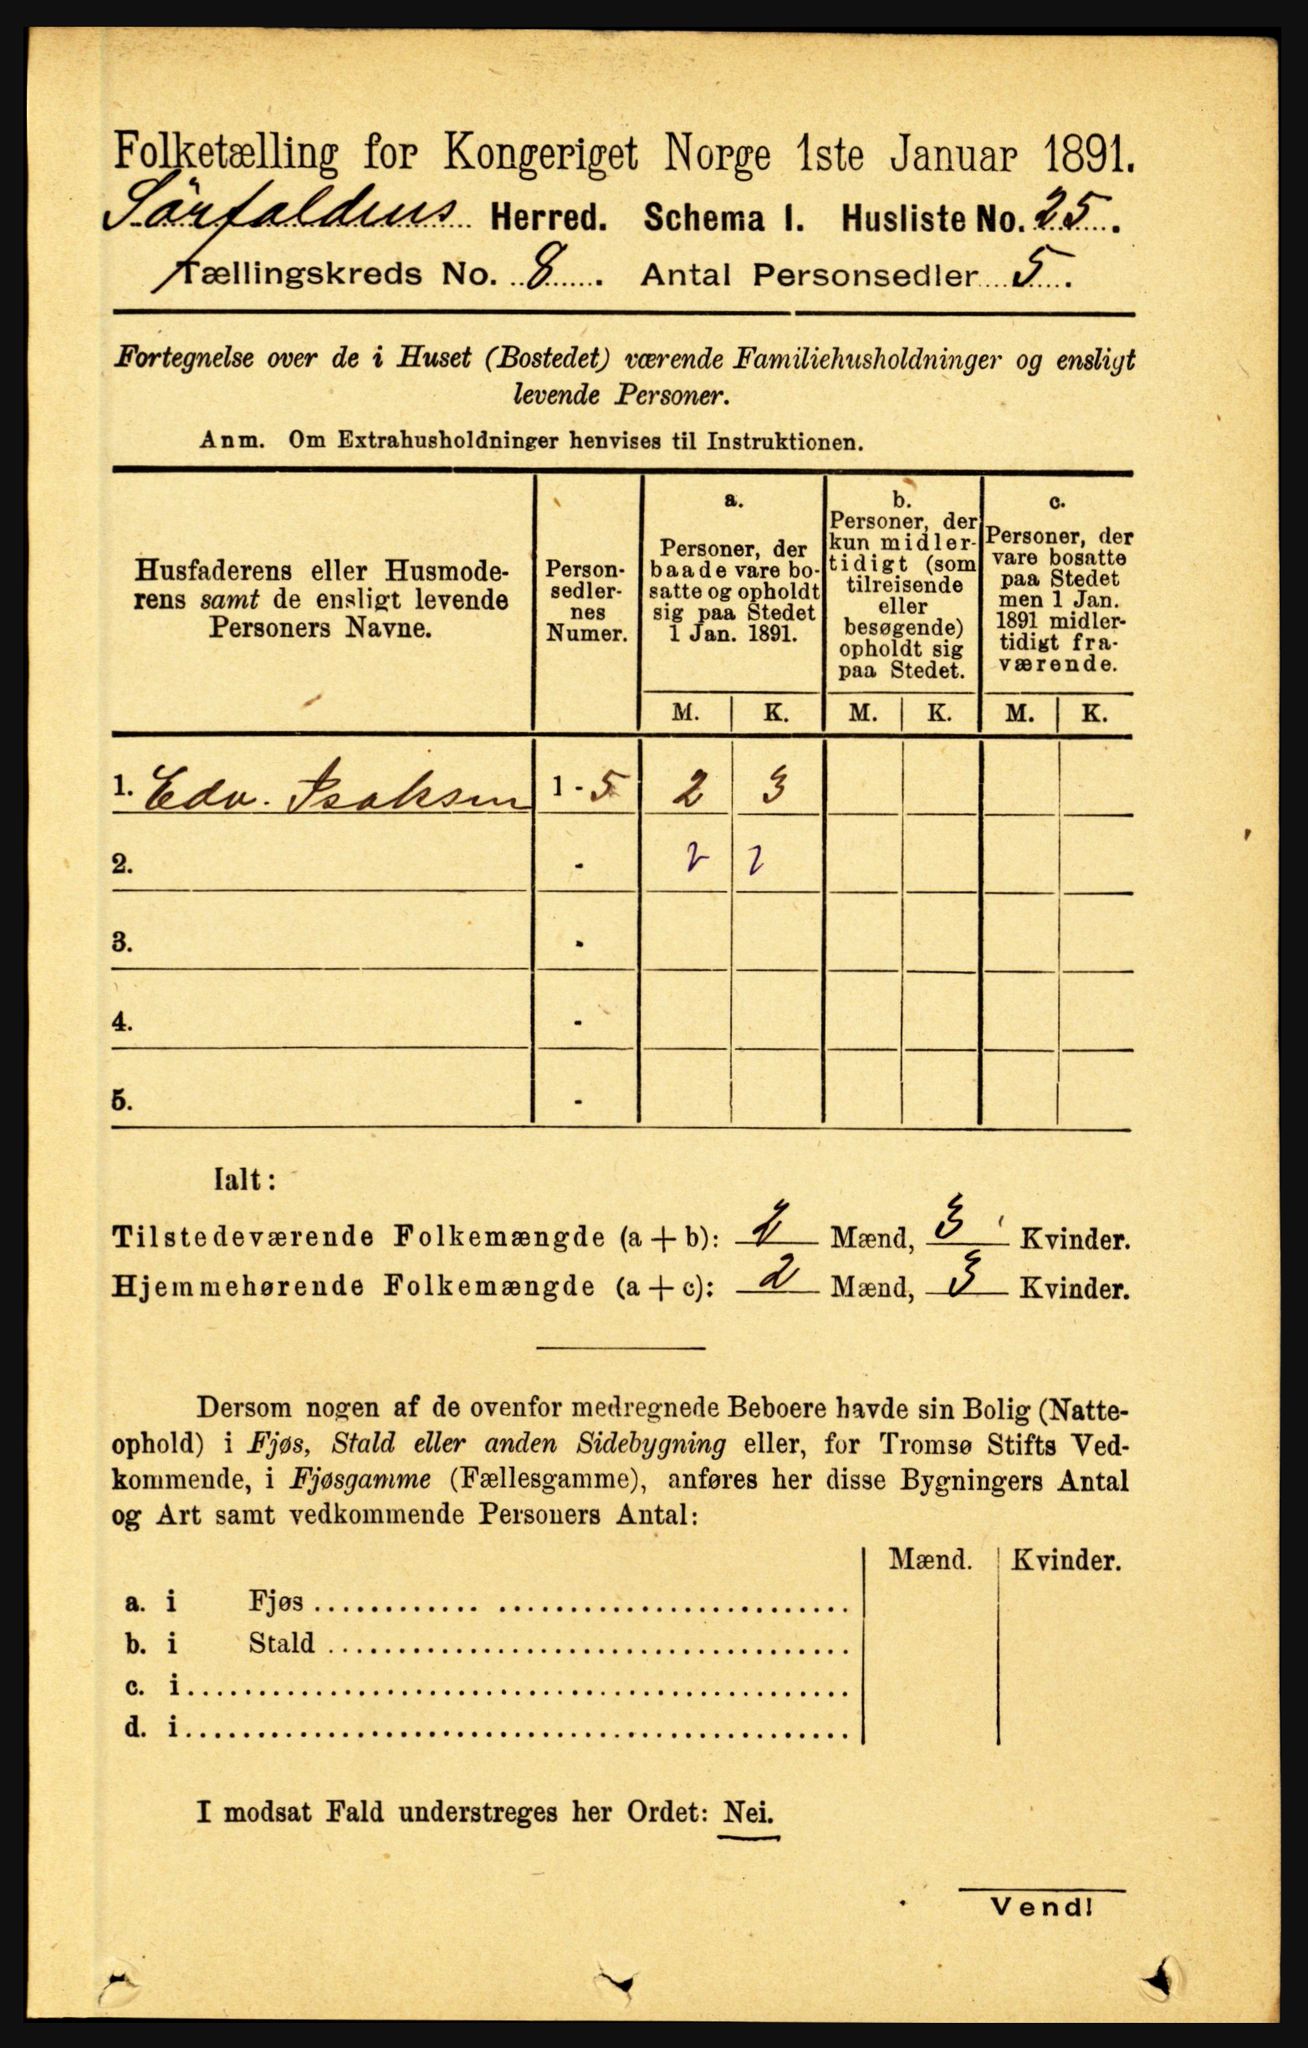 Folketælling for Kongeriget Norge 1ste Januar 1891.
Sörfoldens Herred. Schema I. Husliste No. 25.
Tællingskreds No. 8. Antal Personsedler 5.
Fortegnelse over de i Huset (Bostedet) værende Familiehusholdninger og ensligt
levende Personer.
Anm. Om Extrahusholdninger henvises til Instruktionen.
Husfaderens eller Husmode-
rens samt de ensligt levende
Personers Navne.
Person-
sedler-
nes
Numer.
a.
Personer, der
baade vare bo-
satte og opholdt
sig paa Stedet
1 Jan. 1891.
b.
Personer, der
kun midler-
tidigt (som
tilreisende
eller
besøgende)
opholdt sig
paa Stedet.
c.
Personer, der
vare bosatte
paa Stedet
men 1 Jan.
1891 midler-
tidigt fra-
værende.
M. K. M. K. M. K.
1. Edv. Isaksen 1 - 5 2 3
2. - 2 2
3. -
4. -
5. -
Ialt:
Tilstedeværende Folkemængde (a + b): 2 Mænd, 3 Kvinder.
Hjemmehørende Folkemængde (a + c): 2 Mænd, 3 Kvinder.
Dersom nogen af de ovenfor medregnede Beboere havde sin Bolig (Natte-
ophold) i Fjøs, Stald eller anden Sidebygning eller, for Tromsø Stifts Ved-
kommende, i Fjøsgamme (Fællesgamme), anføres her disse Bygningers Antal
og Art samt vedkommende Personers Antal:
Mænd. Kvinder.
a. i Fjøs
b. i Stald
c. i
d. i
I modsat Fald understreges her Ordet: Nei.
Vend!